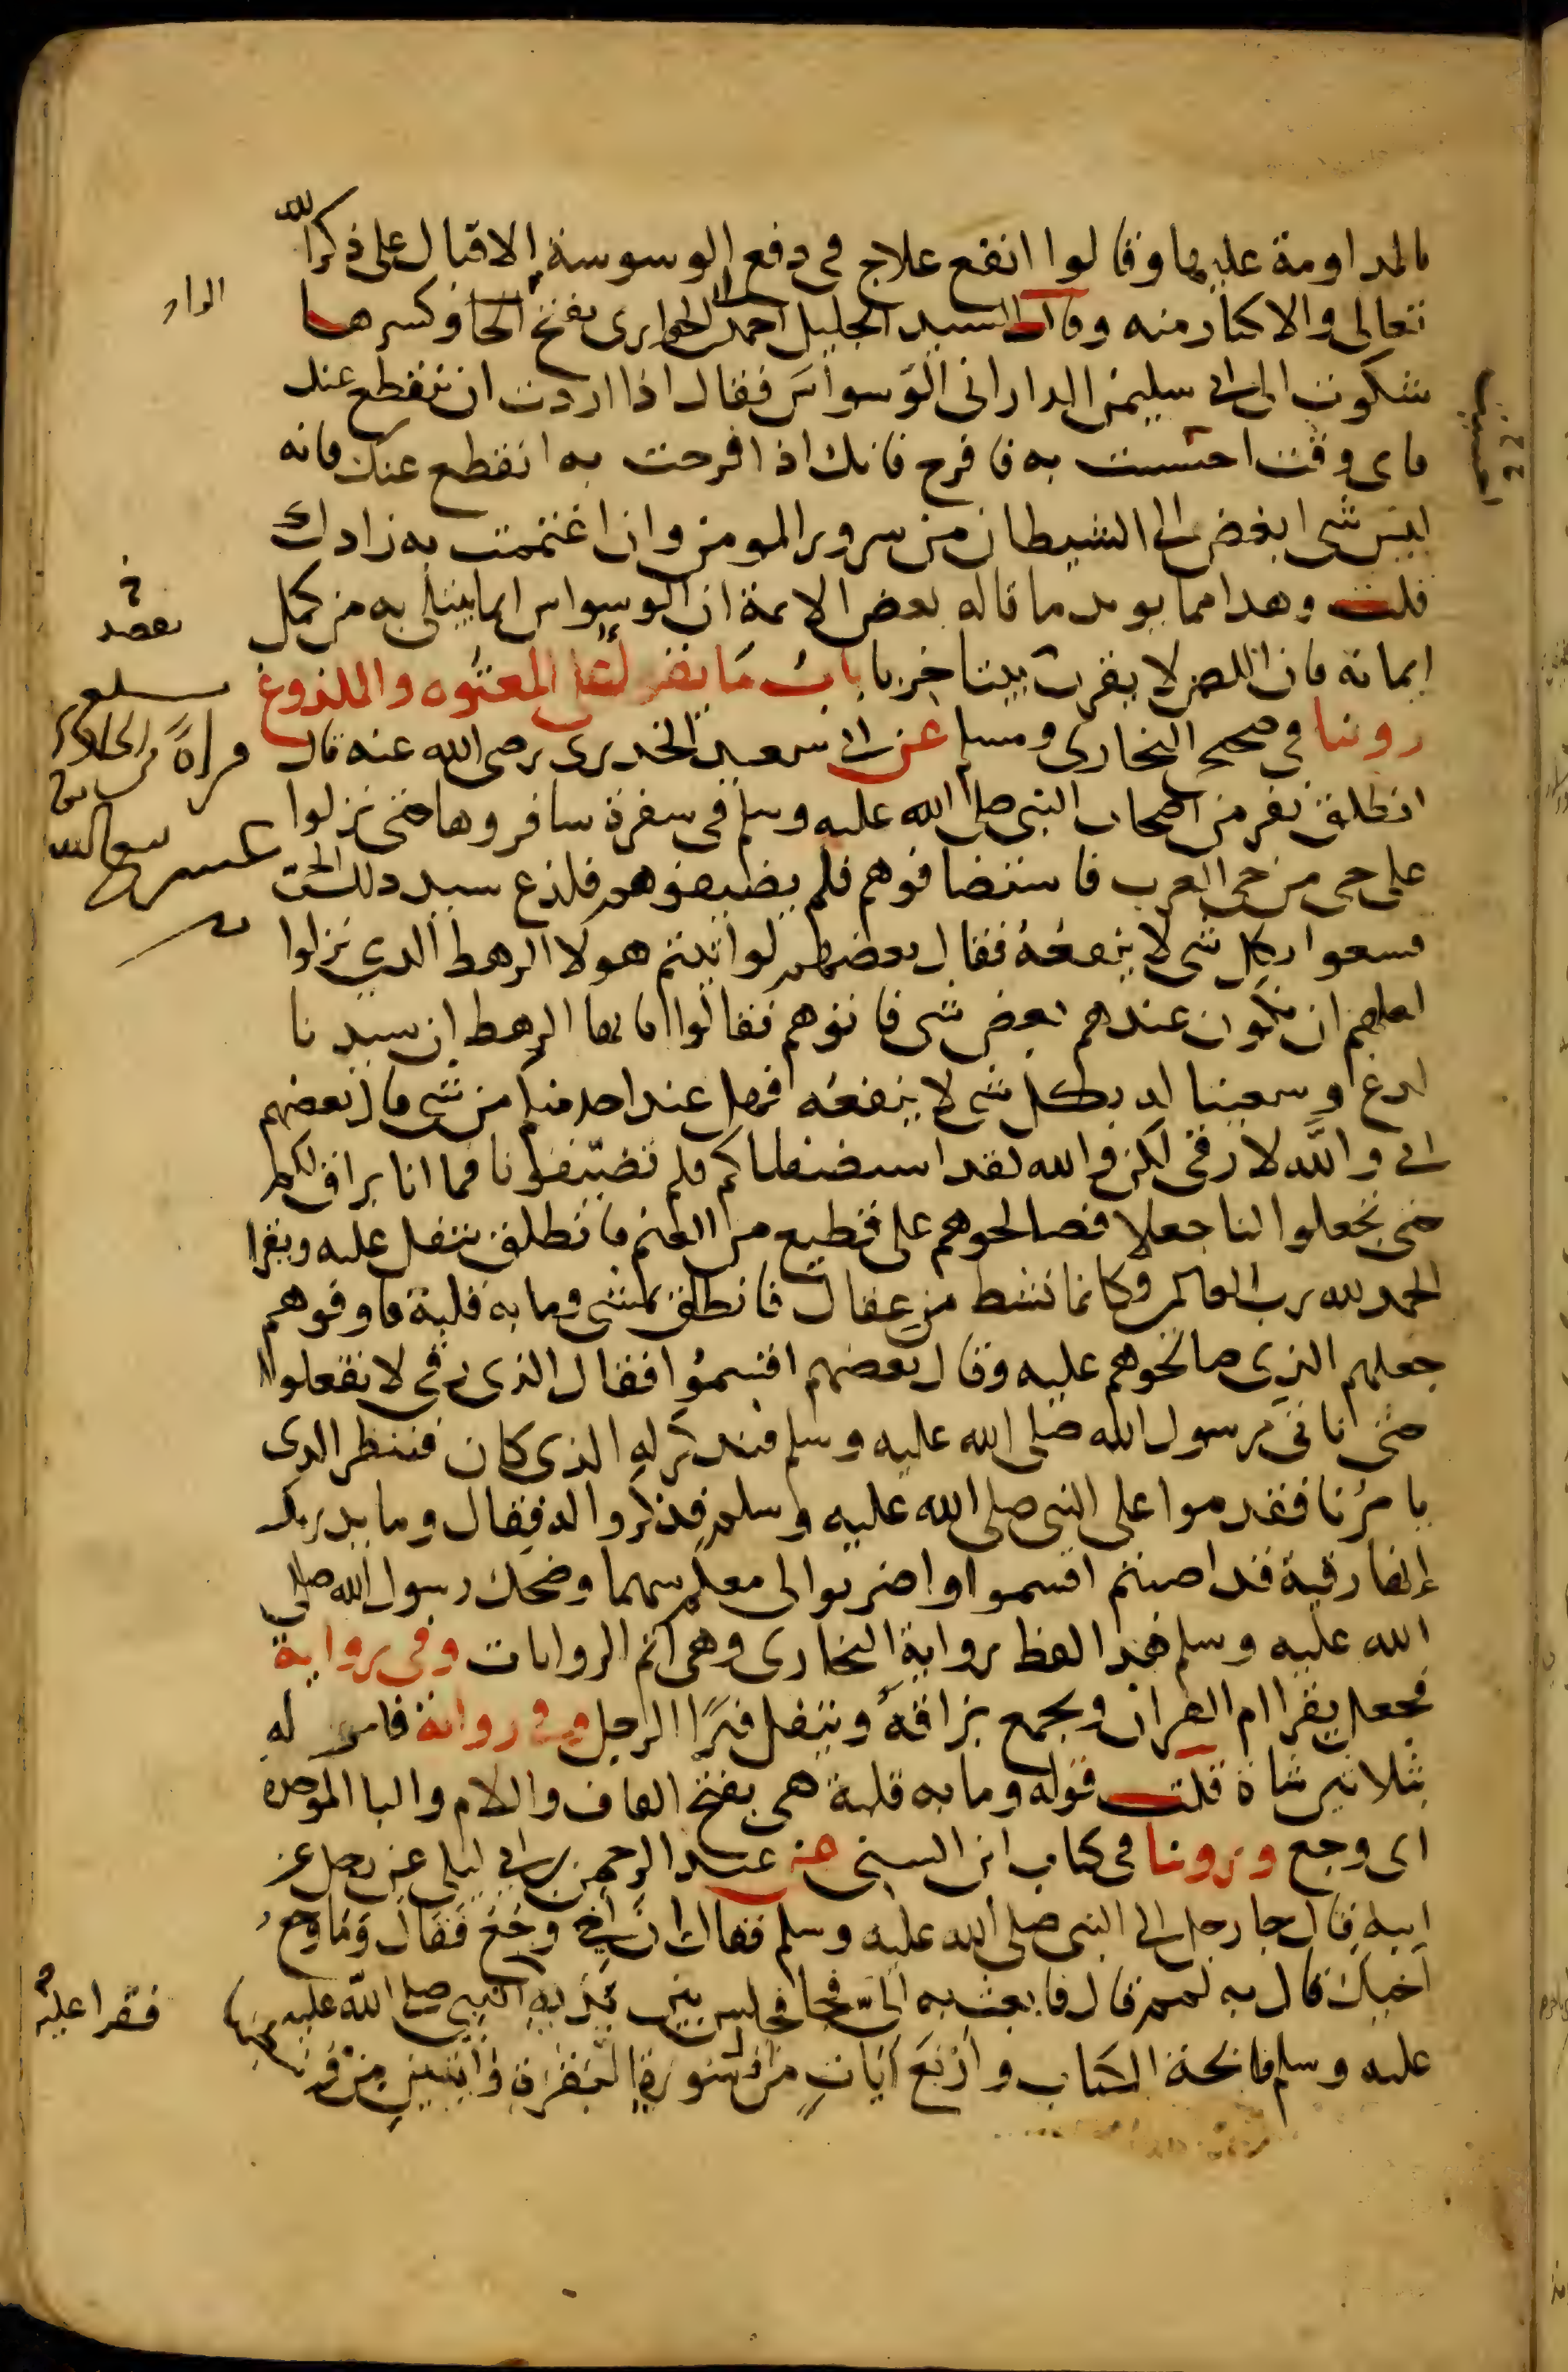 بالمداومة عليها وقالوا انفع علاج في دفع الوسوسة الاقبال على ذكر الله
تعالى والاكثار منه وقال السيد الجليل احمد بن ابى الحوارى بفتح الحا وكسرها
شكوت الى ابى سليمن الدارانى الوَسواسَ فقال اذا اردت ان ينقطع عنك
فاى وقت احسست به فافرح فانك اذا فرحت به انقطع عنك فانه
ليس شى ابغض الى الشيطان من سرور المومن وان اغتممت به زادك
قلت وهدا مما يويد ما قاله بعض الايمة ان الوسواس انما يبتلى به من كمل
ايمانه فان اللص لا يقرب بيتا خربا بابُ مَا يقرا على المعتُوه والملدوغ
روينا في صحيح البخارى ومسلم عن ابى سعيد الخدرى رضى الله عنه قال
انطلق نفر من اصحاب النبى صلى الله عليه وسلم فى سفرة سافروها حتى نزلوا
على حى من حى العرب فاستضافوهم فلم يضيفوهم فلدغ سيد ذلك الحى
فسعوا بكل شى لا ينفعُهُ فقال بعضهم لو اتيتم هولا الرهط الدين نزلوا
لعلهم ان يكون عندهم بعض شى فاتوهم فقالوا يا ايها الرهط ان سيدنا
لدغ وسعينا له بكل شى لا ينفعُه فهل عند احد منكم من شى قال بعضهم
انى والله لارقى لكن والله لقد استضفناكم فلم تضيّفونا فما انا براق لكم
حتى تجعلوا لنا جعلا فصالحوهم على قطيع من الغنم فانطلق يتفل عليه ويقرا
الحمد لله رب العالمين فكانما نشط من عقال فانطلق يمشى وما به قلبة فاوفوهم
جعلهم الذى صالحوهم عليه وقال بعضهم اقتسمُوا فقال الذى رقى لا تفعلوا
حتى ناتى رسول الله صلى الله عليه وسلم فنذكر له الذى كان فننظر الدى
يامُرنا فقدموا على النبى صلى الله عليه وسلم فذكروا له فقال وما يدريك
انها رقية قد اصبتم اقسموا واضربوا لى معكم سهما وضحك رسول الله صلى
الله عليه وسلم هذا لفظ رواية البخارى وهى اتم الروايات وفى رواية
فجعل يقرا ام القران ويجمع بزاقهُ ويتفل فبرَا الرجل وفى رواية فامر له
بثلاثين شاة قلت قوله وما به قلبة هى بفتح القاف واللام والبا الموحدة
اى وجع وروينا فى كتاب ابن السنى عن عبد الرحمن بن ابى ليلى عن رجل عن
ابيهِ قال جا رجل الى النبى صلى الله عليه وسلم فقال ان اخى وَجَعٌ فقال وَمَا وَجعُ
اَخِيكَ قال به لمم قال فابعث به اِلىّ فجا فجلس بين يديه النبى صلى الله عليه
عليه وسلم فاتحة الكتاب واَرْبَعَ اَيَاتٍ من اول سُورة البَقَرَةِ وَاَيَتَيْنِ مِنْ وَسَطِهَا
فقرا عليْه